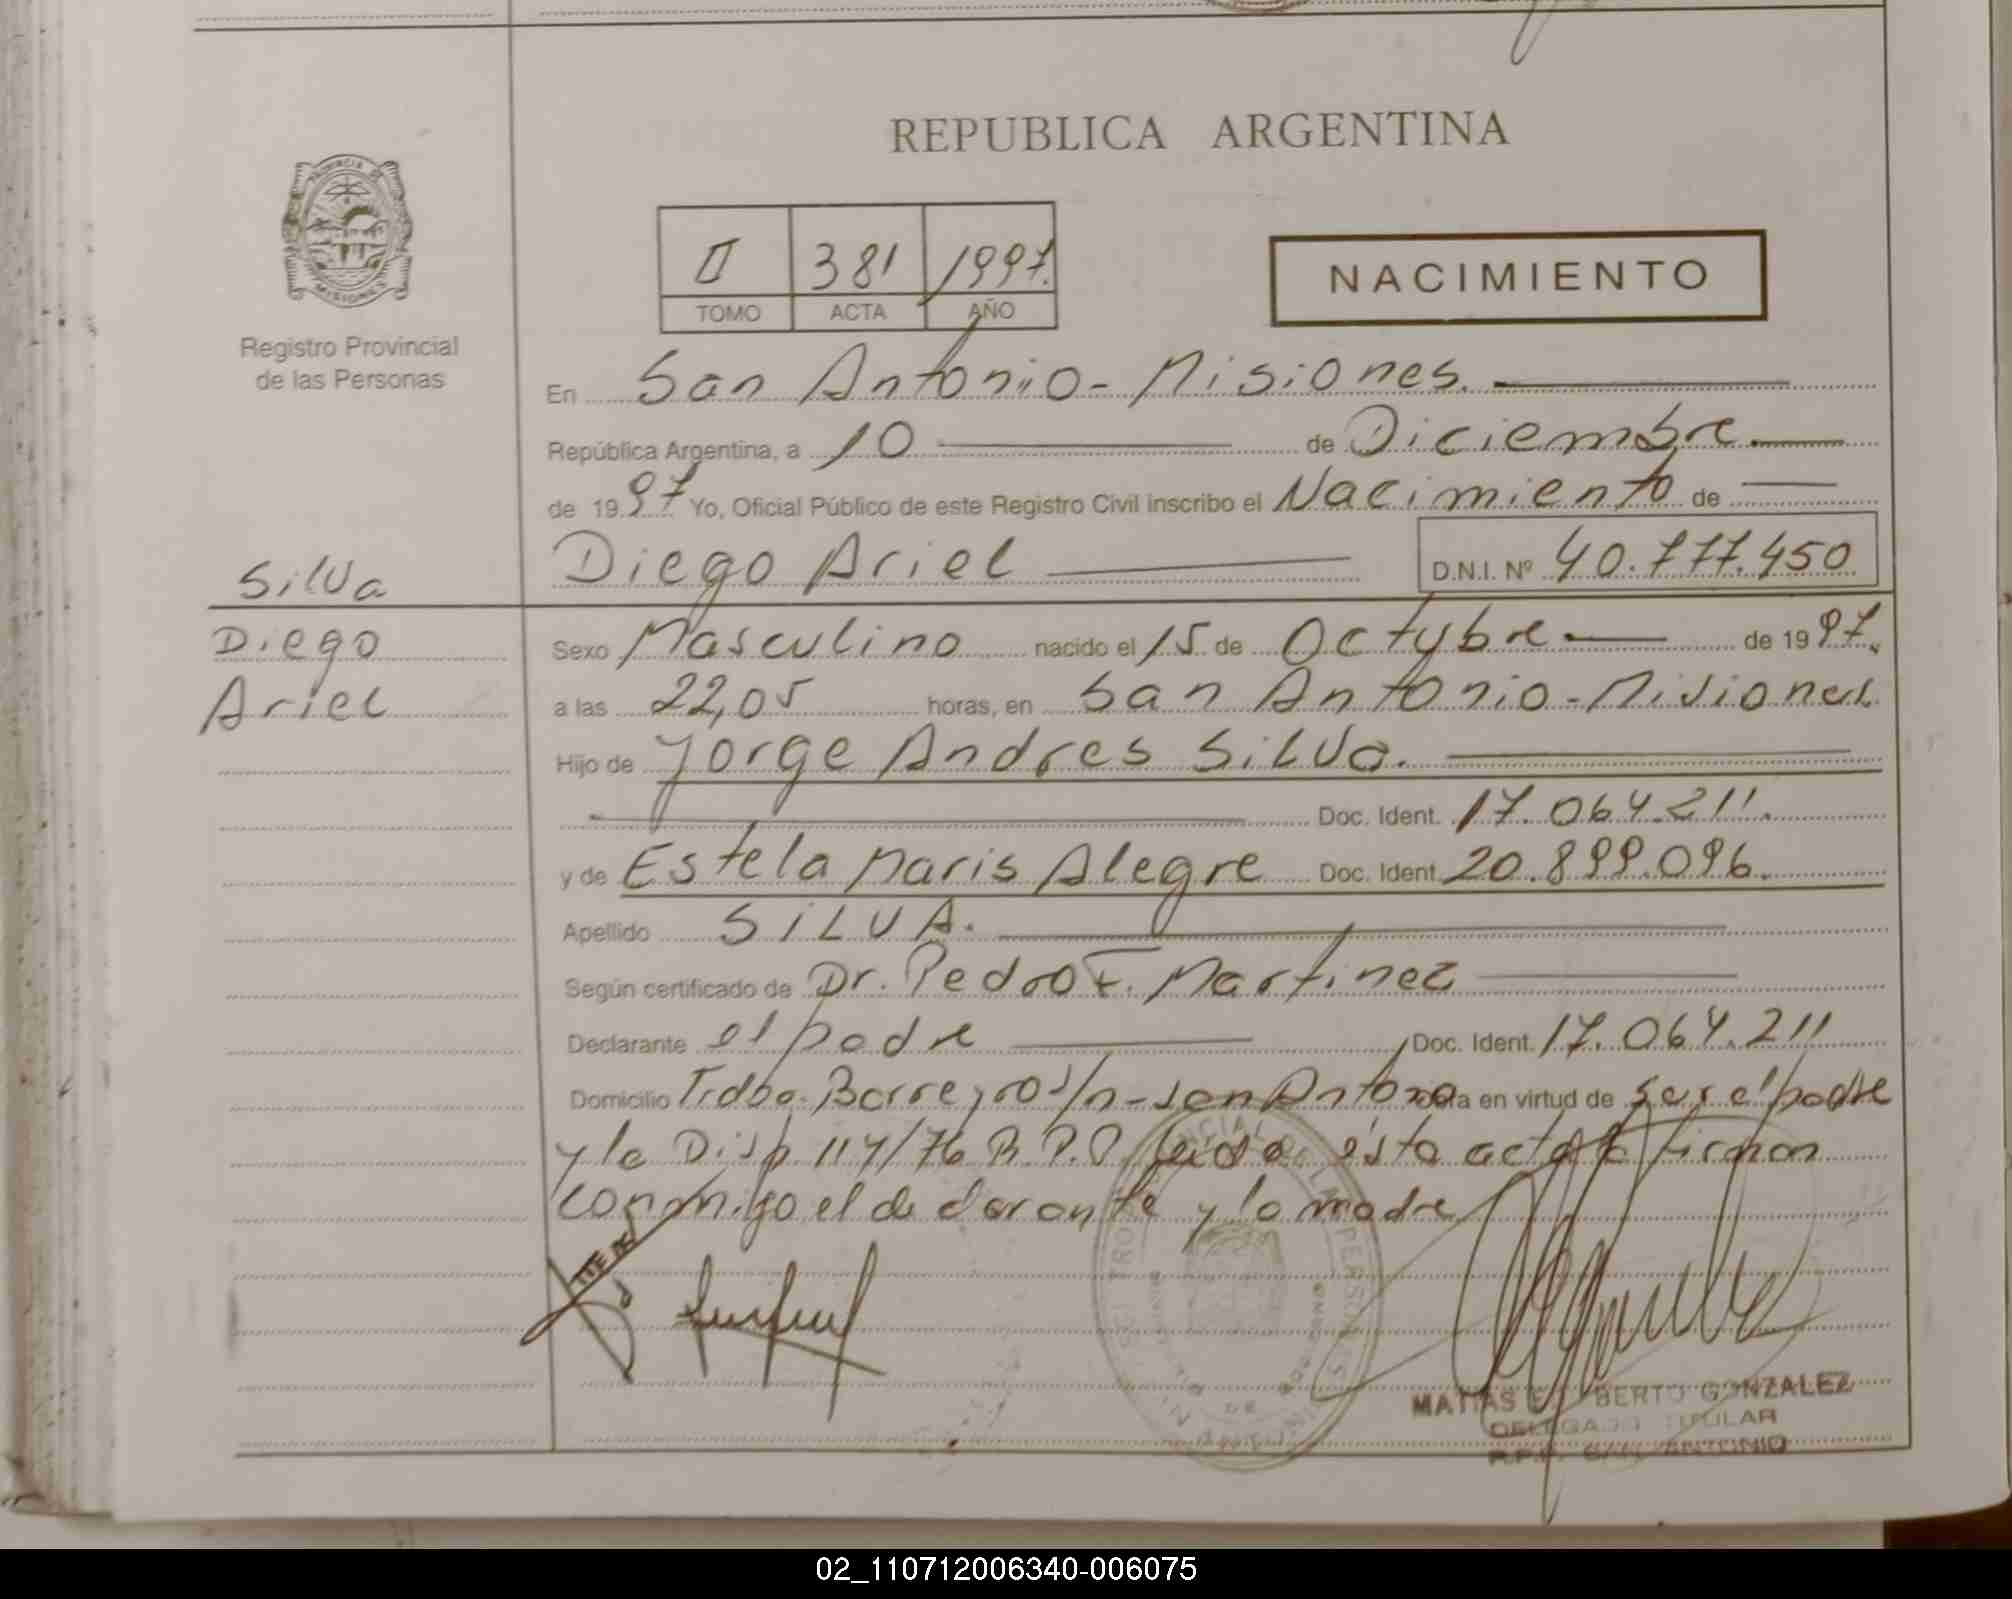 REPUBLICA ARGENTINA
PROVINCIA DE
MISIONES
Registro Provincial
de las Personas
II 381 1997.
TOMO ACTA AÑO
NACIMIENTO
En San Antonio - Misiones.
República Argentina, a 10 de Diciembre
de 1997 Yo, Oficial Público de este Registro Civil inscribo el Nacimiento de
Diego Ariel D.N.I. Nº 40.777.450
Silva
Diego
Ariel
Sexo Masculino nacido el 15 de Octubre de 1997.
a las 22,05 horas, en San Antonio - Misiones.
Hijo de Jorge Andres Silva.
Doc. Ident. 17.064.211.
y de Estela Maris Alegre Doc. Ident. 20.899.096.
Apellido SILVA.
Según certificado de Dr. Pedro F. Martinez
Declarante el padre Doc. Ident. 17.064.211
Domicilio Barreyro s/n - San Antonio en virtud de ser el padre
y la Disp. 117/76 R.P.P. Leida ésta acta la firman
conmigo el declarante y la madre
MATIAS BERTO GONZALEZ
DELEGADO TITULAR
R.P.P. SAN ANTONIO
02_110712006340-006075